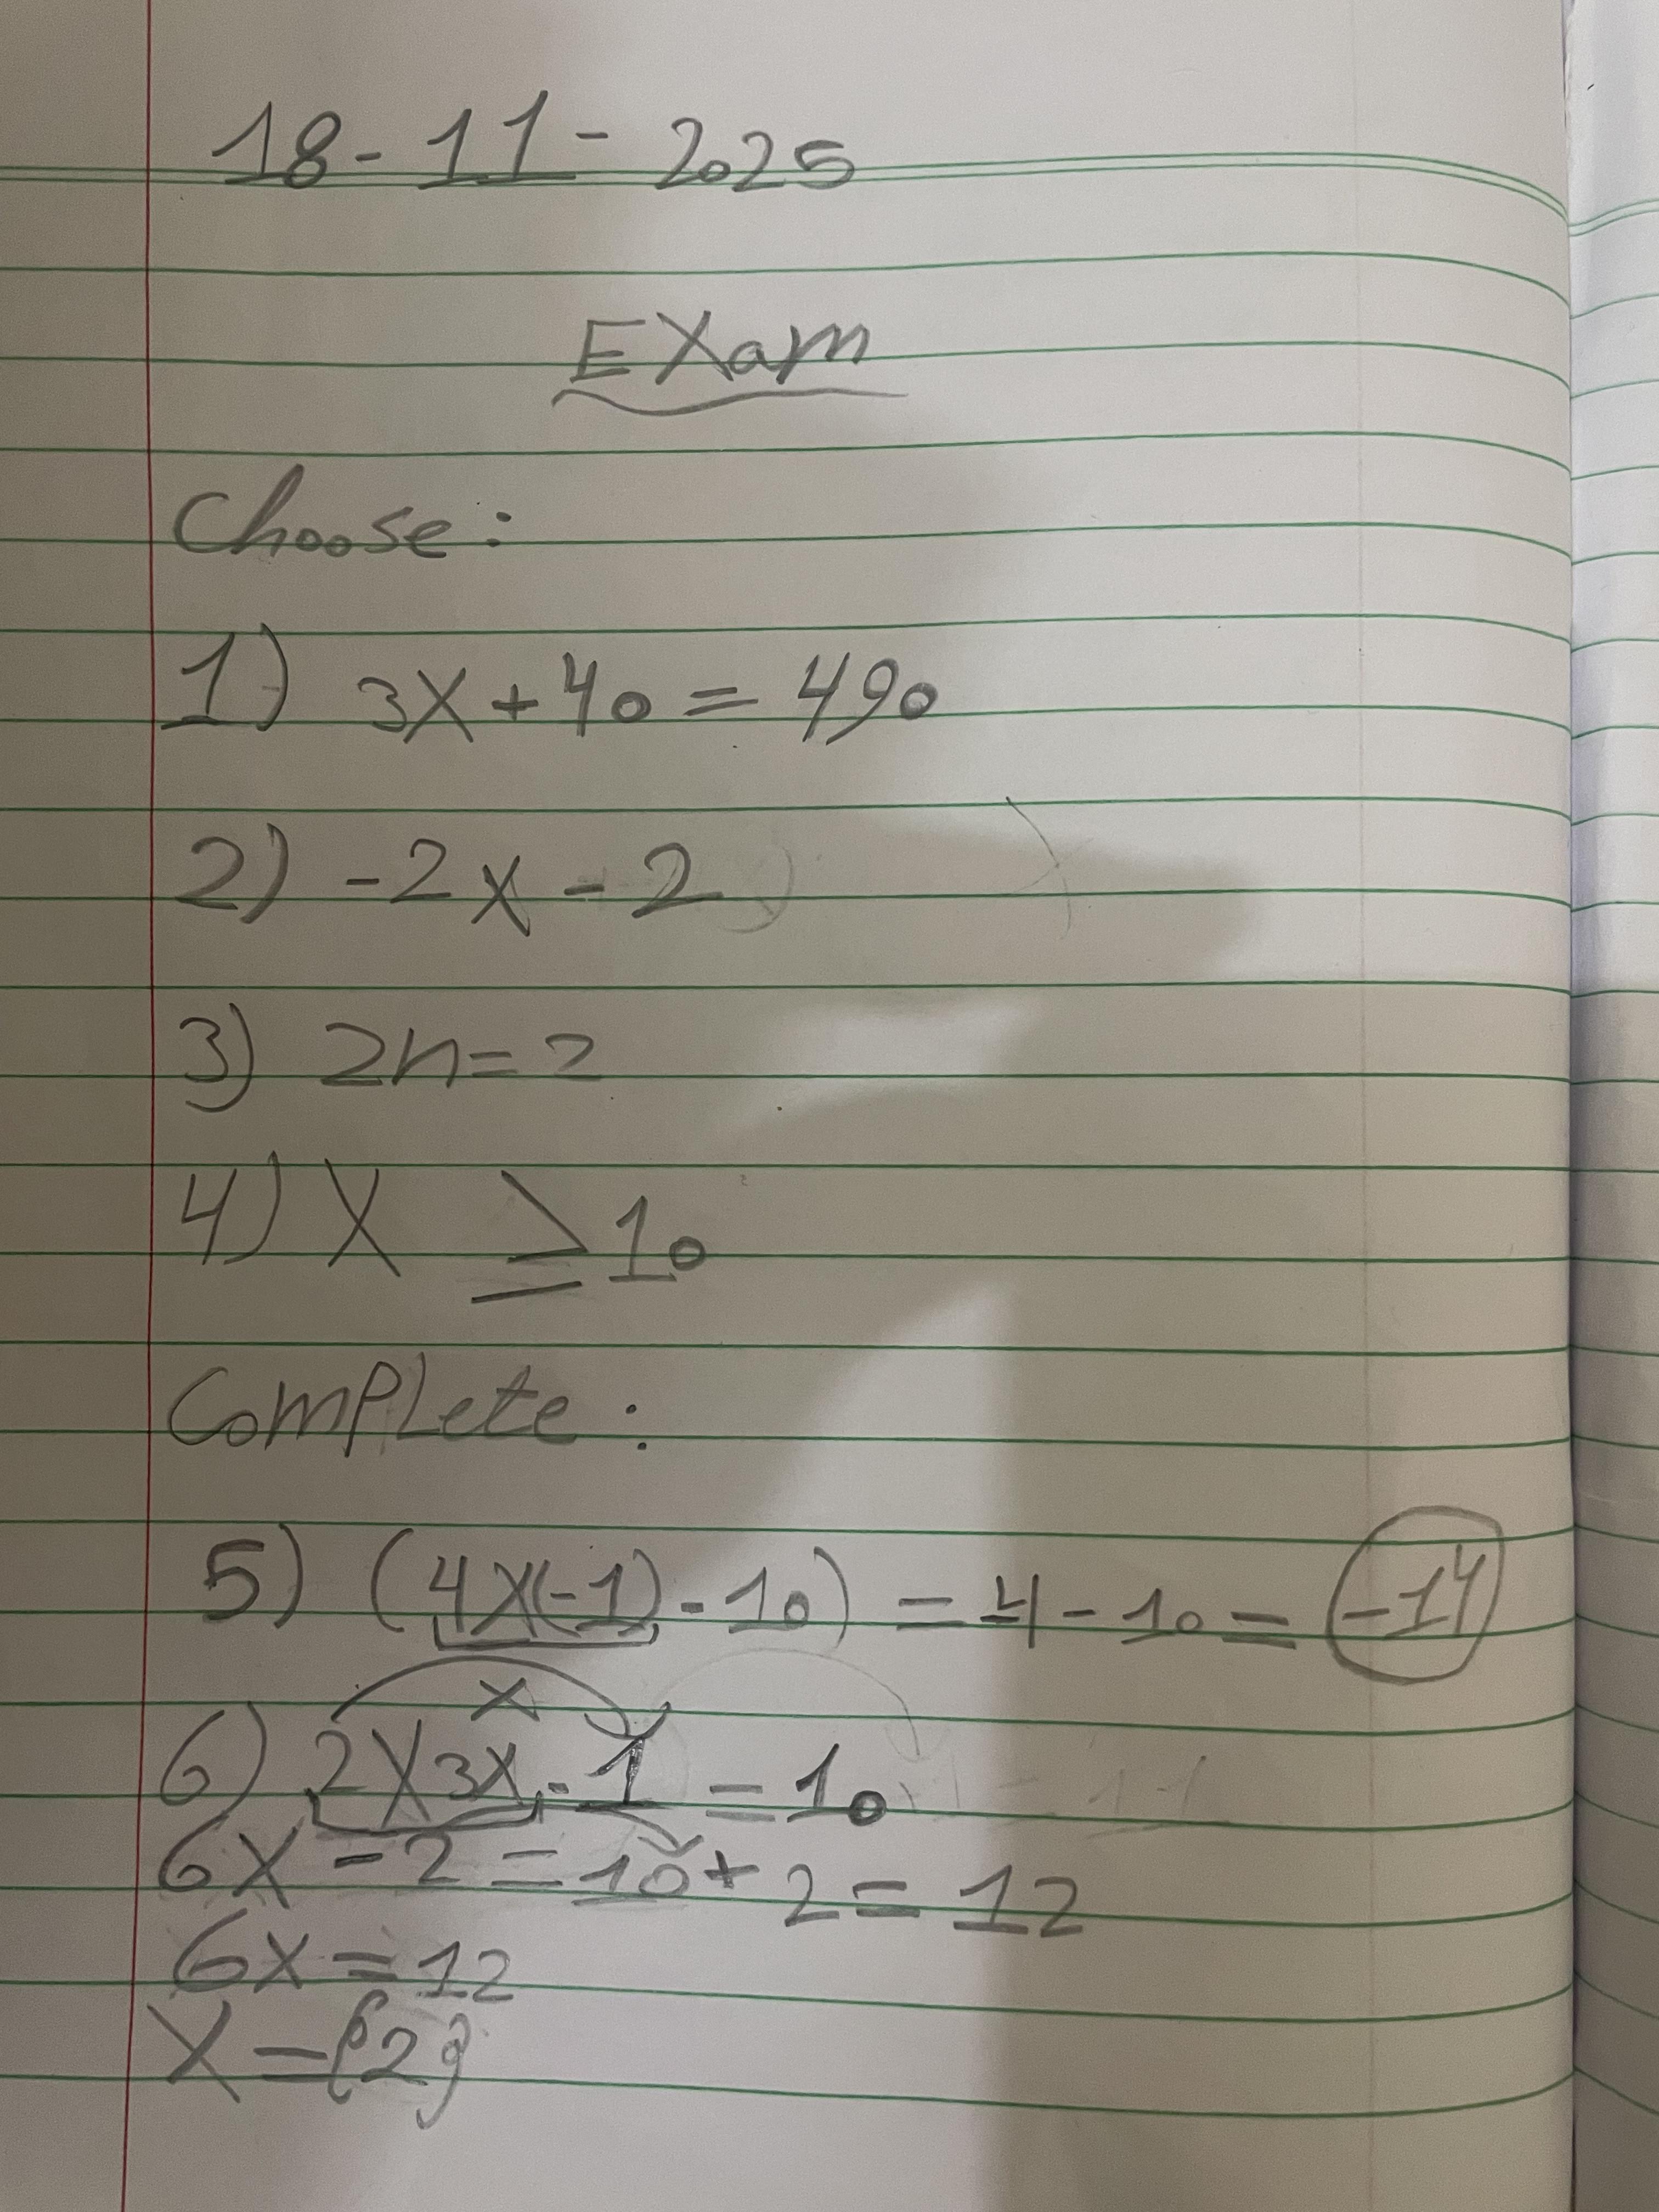 18-11-2025
Exam
Choose:
1) 3X+40=490
2) -2x-2
3) 2n=2
4) X ≥10
Complete:
5) (4X(-1)-10) =-4-10=-14
x
6) 2X3X-1=10
6X-2=10+2=12
6x=12
X={2}